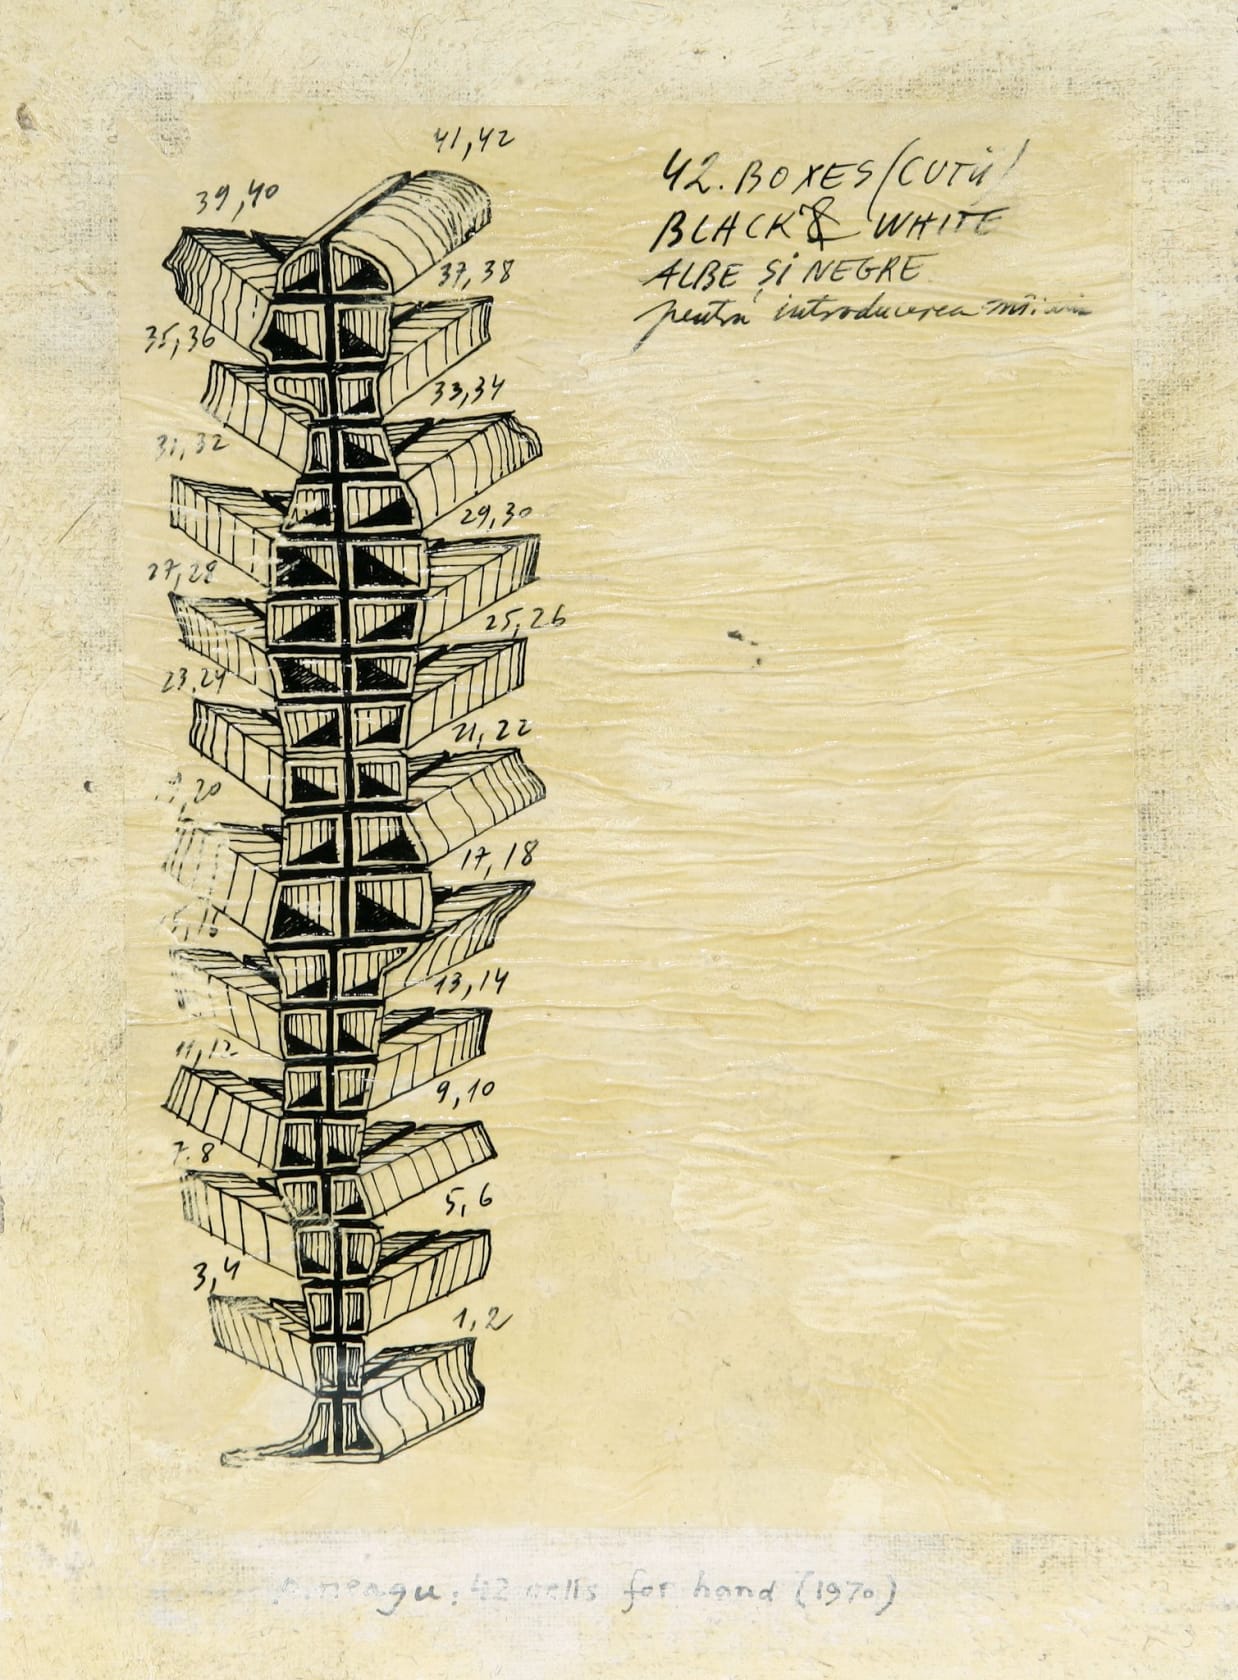 41,42
39,40
37,38
35,36
33,34
31,32
29,30
27,28
25,26
23,24
21,22
20
17,18
13,14
11,12
9,10
7.8
5,6
3,4
1,2
42. BOXES (CUTII)
BLACK & WHITE
ALBE ȘI NEGRE
pentru introducerea
neagu: 42 cells for hand (1970)